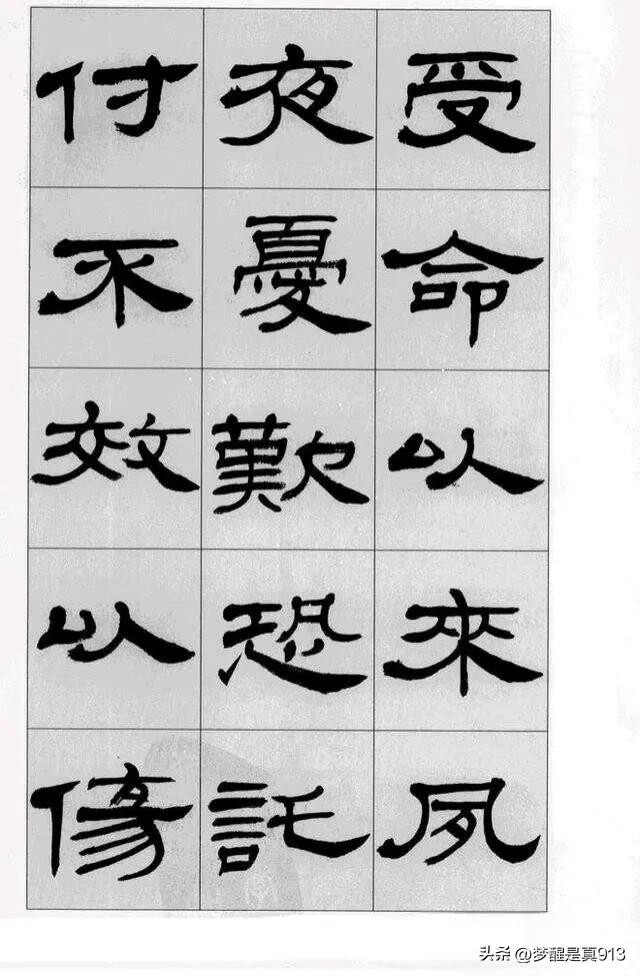 受命以來夙
夜憂歎恐託
付不效以傷
头条 @梦醒是真913